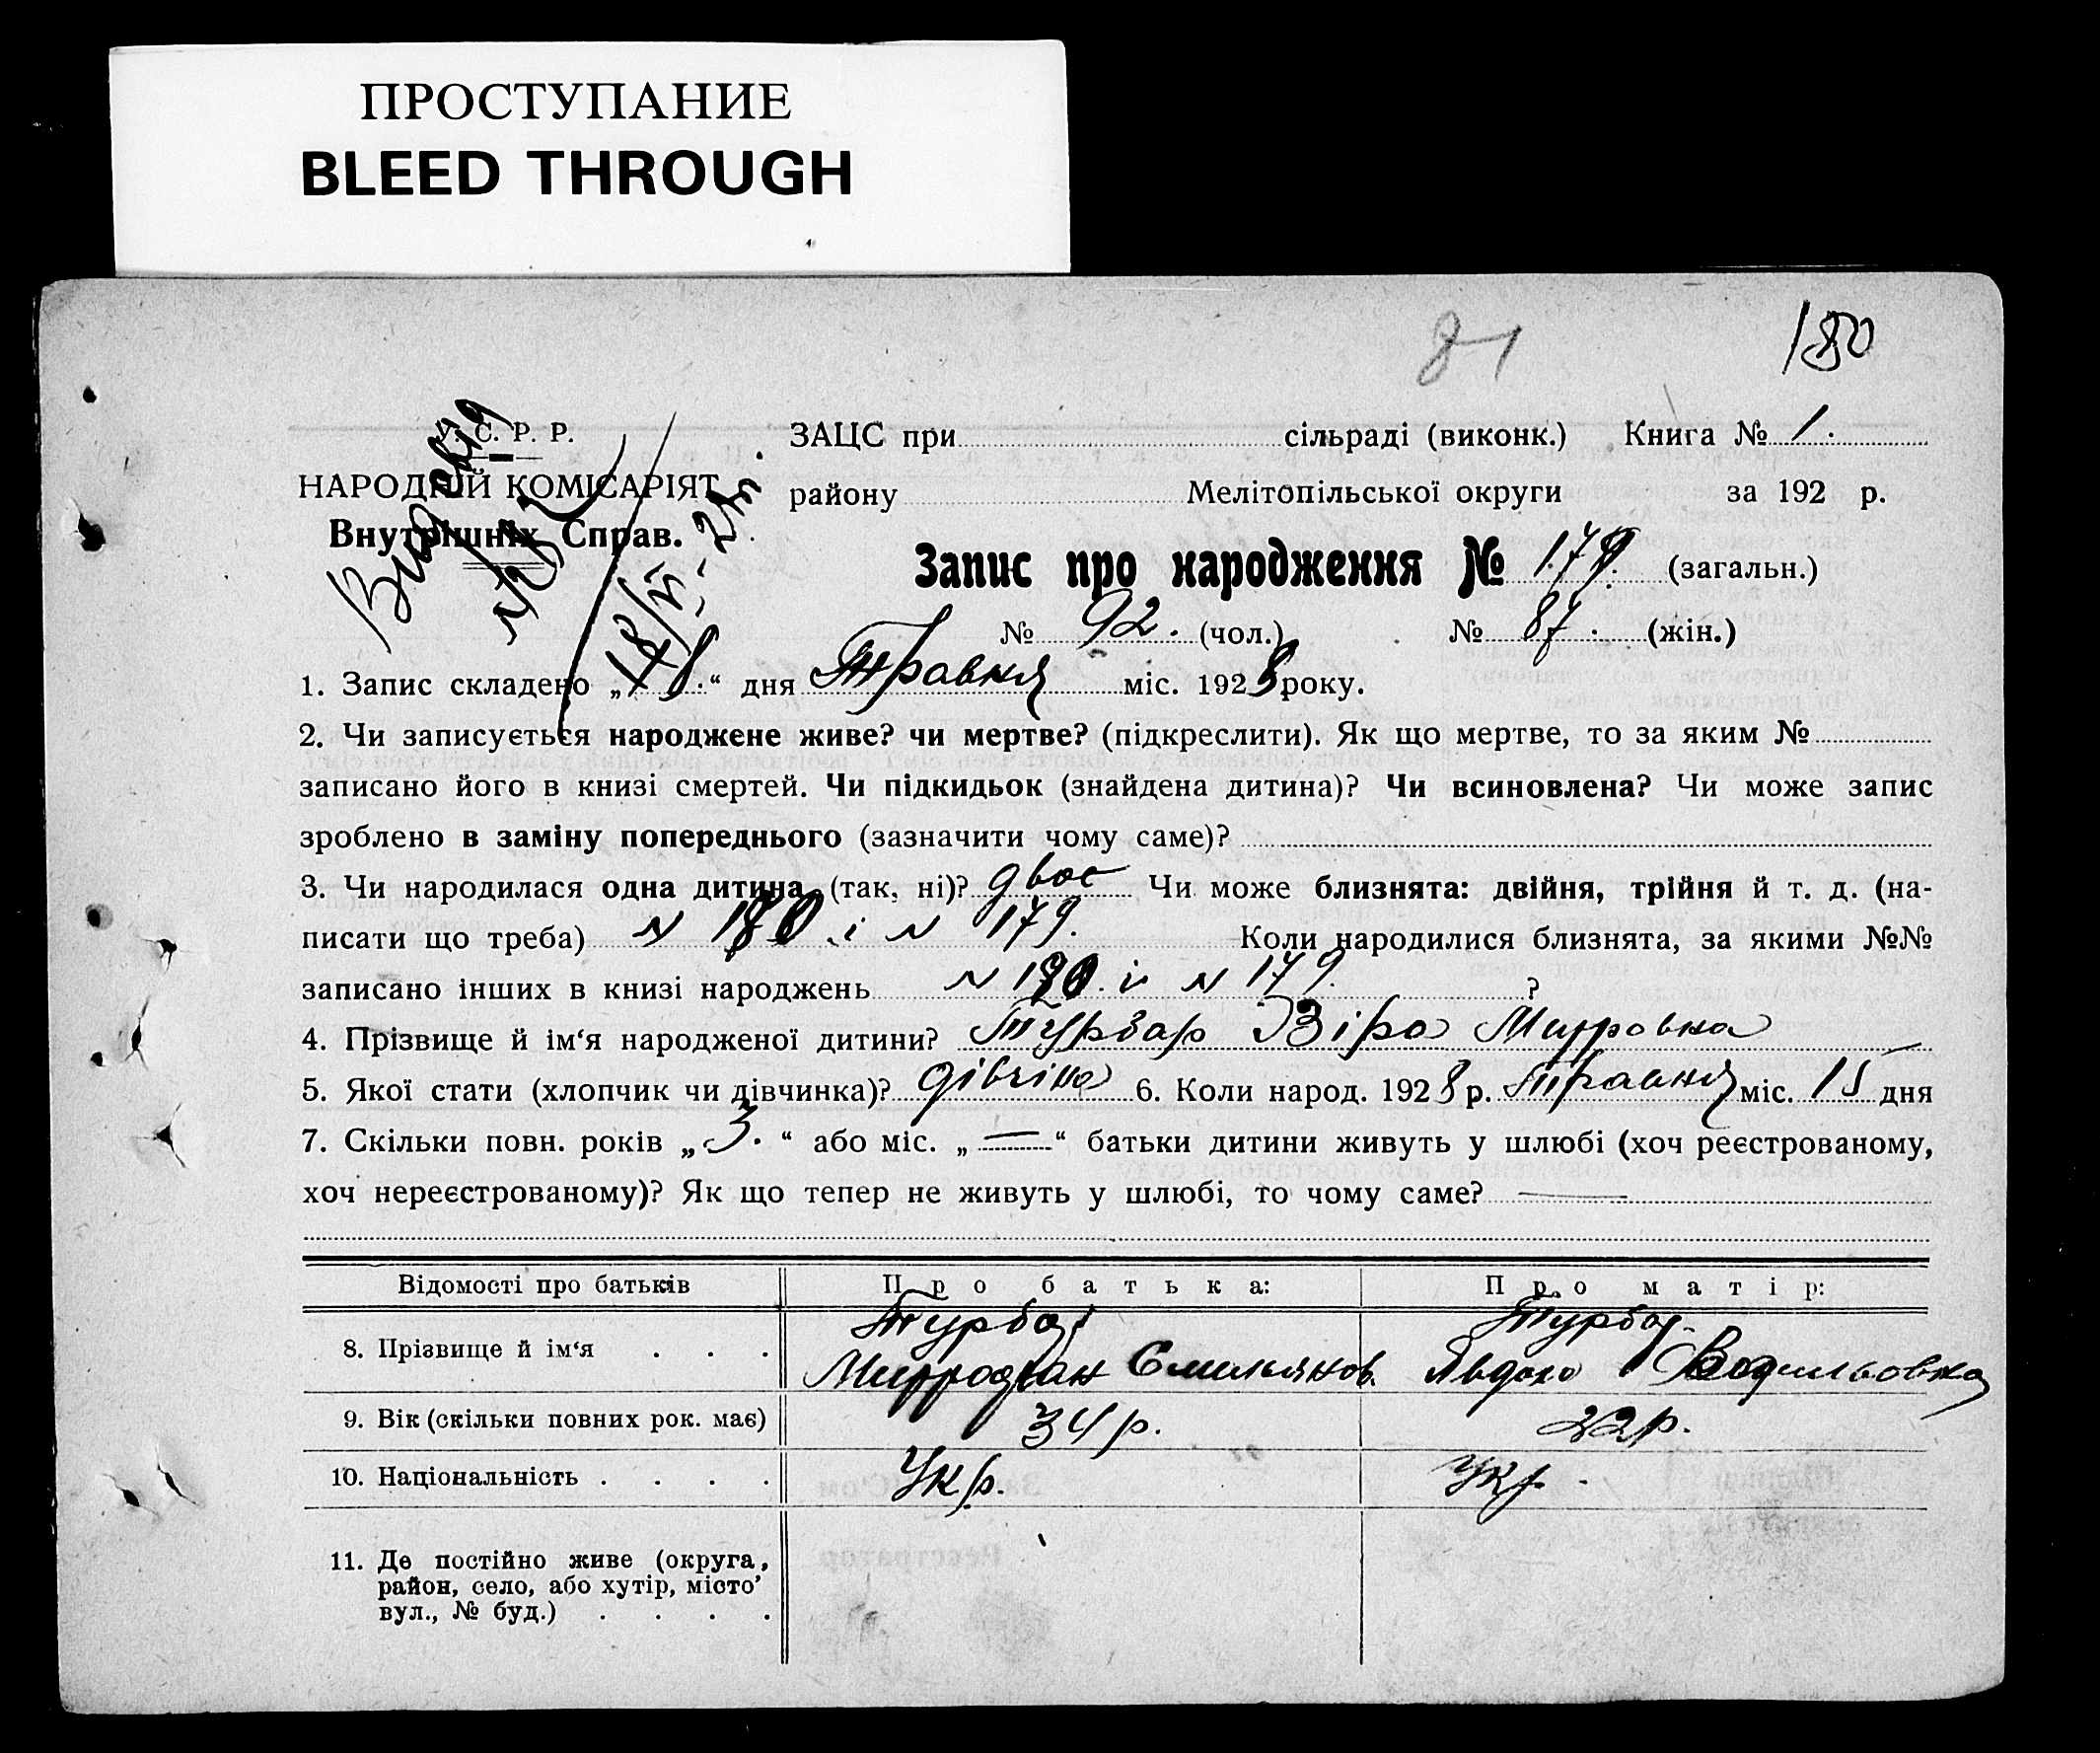 ПРОСТУПАНИЕ
BLEED THROUGH
81
180
У. С. Р. Р.
НАРОДНІЙ КОМІСАРІЯТ
Внутрішніх Справ.
ЗАЦС при сільраді (виконк.) Книга № 1.
району Мелітопільської округи за 192 р.
Запис про народження № 179. (загальн.)
№ 92. (чол.) № 87. (жін.)
1. Запис складено „18.“ дня Травня міс. 1928 року.
2. Чи записується народжене живе? чи мертве? (підкреслити). Як що мертве, то за яким №
записано його в книзі смертей. Чи підкидьок (знайдена дитина)? Чи всиновлена? Чи може запис
зроблено в заміну попереднього (зазначити чому саме)?
3. Чи народилася одна дитина (так, ні)? двоє Чи може близнята: двійня, трійня й т. д. (на-
писати що треба) N 180 і N 179. Коли народилися близнята, за якими №№
записано інших в книзі народжень N 180. і N 179. ?
4. Прізвище й ім‘я народженої дитини? Турбар Віра
5. Якої стати (хлопчик чи дівчинка)? дівчіна 6. Коли народ. 1928 р. Травня міс. 15 дня
7. Скільки повн. років „3.“ або міс. „—“ батьки дитини живуть у шлюбі (хоч реєстрованому,
хоч нереєстрованому)? Як що тепер не живуть у шлюбі, то чому саме? —
Відомості про батьків Про батька: Про матір:
8. Прізвище й ім‘я . . .
9. Вік (скільки повних рок. має) 34 р. 22 р.
10. Національність . . . . Укр. Укр.
11. Де постійно живе (округа,
район, село, або хутір, місто’
вул., № буд.) . . . .